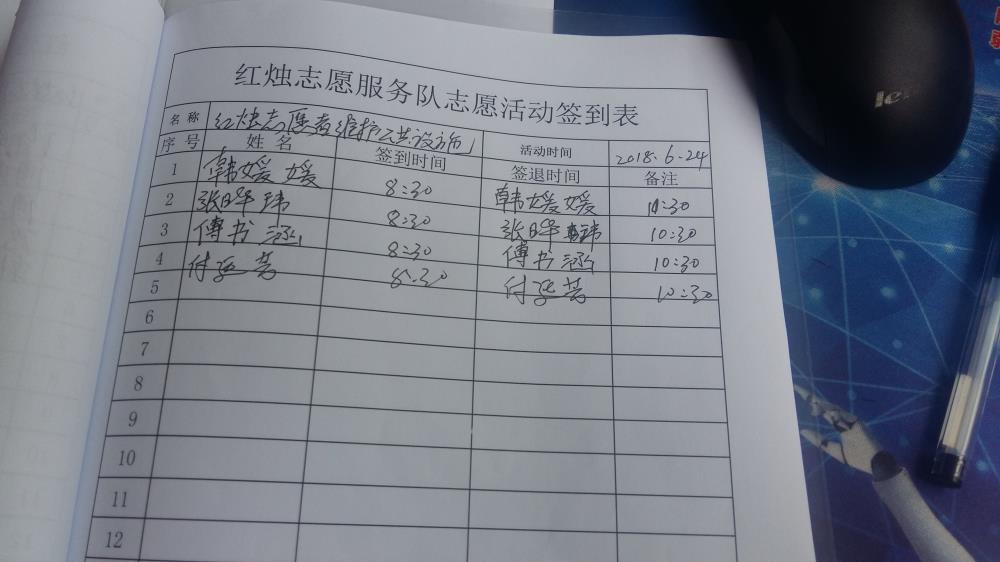 红烛志愿服务队志愿活动签到表
名 称 红烛志愿者维护公共设施 活动时间 2018.6.24
序 号 姓 名 签到时间 签退时间 备注
1 韩媛媛 8:30 韩媛媛 10:30
2 张晔玮 8:30 张晔玮 10:30
3 傅书涵 8:30 傅书涵 10:30
4 付 8:30 付 10:30
5
6
7
8
9
10
11
12